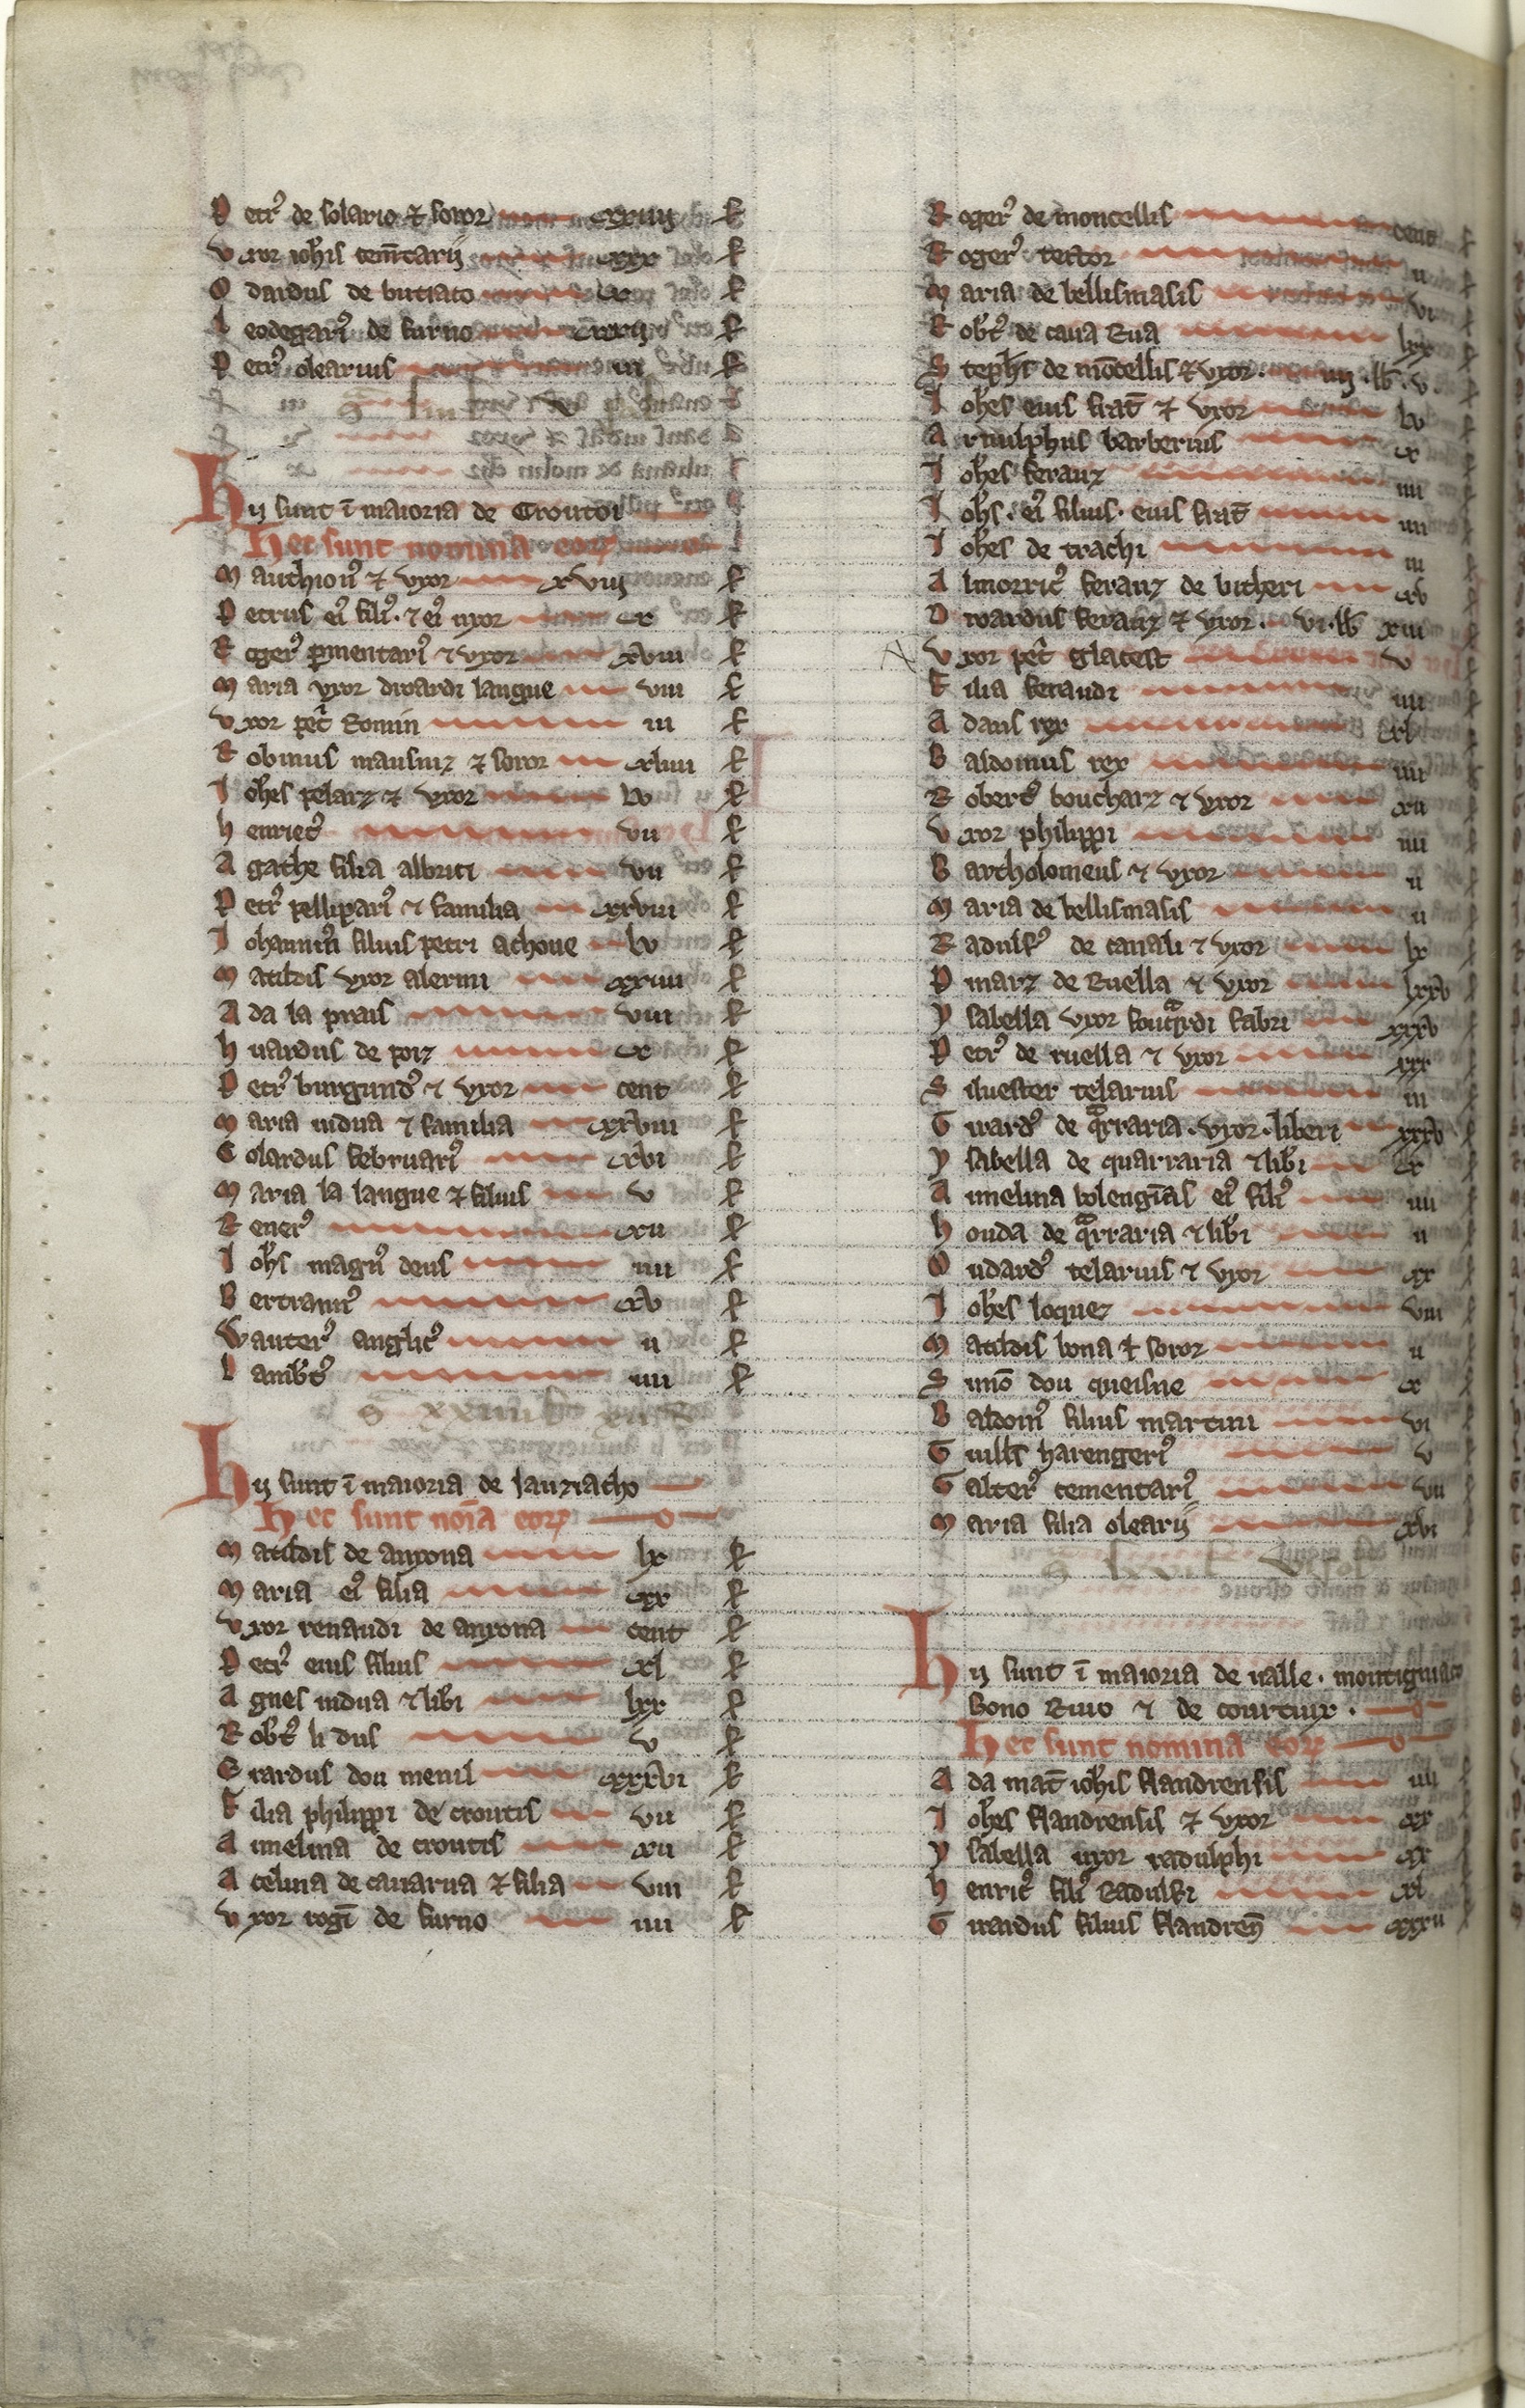 Petr9 de solario ⁊ soror xxiiij ł
Uxor ioh̄is cem̄tarij xxx ł
Odardus de buciaco x ł
Leodegari9 de furno xxvij ł
Petr9 olearius iii ł
Hij sunt ī maioria de Croutoi
Hec sunt nomina eorꝝ
Mauchion9 ⁊ vxor xviij ł
Petrus ei9 fili9 · ⁊ ei9 uxor x ł
Roger9 ꝑmentari9 ⁊ vxor xviii ł
Maria vxor droardi langue viii ł
Vxor pet̄ Romin iii ł
Robinus mausnuz ⁊ soror xliiii ł
Ioh̄es pelarz ⁊ vxor lv ł
henric9 vii ł
Agathe filia albrici vii ł
Petr9 pellipari9 ⁊ familia xxviii ł
Iohannin9 filius petri achoue lv ł
Matildis vxor alermi xxiiii ł
Ada la prais viii ł
huardus de porz x ł
Petr9 burgund9 ⁊ vxor cent ł
Maria uidua ⁊ familia xxviii ł
Colardus februari9 xvi ł
Maria la langue ⁊ filius v ł
Rener9 xii ł
Ioh̄s magn9 deus iiii ł
Bertrann9 xv ł
Wauter9 anglic9 ii ł
Lamb̄t9 iiii ł
Hij sunt ī maioria de Iauziacho
Hec sunt noīa eorꝝ
Matildis de anxona lx ł
Maria ei9 filia xx ł
Vxor renaudi de anxona cent ł
Petr9 eius filius xl ł
Agnes uidua ⁊ lib̄i lxx ł
Rob̄t9 li dus v ł
Erardus dou menil xxxvi ł
Filia philippi de croutis vii ł
Aimelina de croutis xii ł
Acelina de cauarua ⁊ filia viii ł
Vxor roḡi de furno iiii ł
Roger9 de moncellis cent
Roger9 textor ii
Maria de bellismasis vi
Rob̄t9 de caua Rua lxx
Steph̄s de mōcellis ⁊ vxor · iiij · lb̄ · v ·
Ioh̄es eius frat̄ ⁊ vxor lv
Arnulphus barberius x
Ioh̄es feranz iiii
Ioh̄s · ei9 filius · eius frat̄ iiii
Ioh̄es de trachi iii
Almorric9 feranz de vitheri xv
Droardus feranz ⁊ vxor · vi · lb̄ xiii
Vxor pet̄ glacest v
Filia feraudi iiii
Adans rex xl
Baldoinus rex iiii
Robert9 boucharz ⁊ vxor xii
Vxor philippi iiii
Bartholomeus ⁊ vxor ii
Maria de bellismasis ii
Radulf9 de canali ⁊ vxor lx
Pinarz de Ruella ⁊ vxor lxxv
Ysabella vxor fouq̄rdi fabri xxxv
Petr9 de ruella ⁊ vxor xxx
Siluester telarius iii
Girard9 de q̄rraria · vxor · liberi xxxv
Ysabella de quarraria ⁊ lib̄i x
Aimelina bolengīas ei9 fili9 iiii
houda de q̄rraria ⁊ lib̄i ii
Oudard9 telarius ⁊ vxor xx
Ioh̄es loquez viii
Matildis bona ⁊ soror ii
Simō dou queisne x
Baldoin9 filius martini vi
Guill̄s harengeri9 v
Galter9 cementari9 vii
Maria filia olearij xvi
Hij sunt ī maioria de ualle · montigniaco
Bono Riuo ⁊ de courtiux ·
Hec sunt nomina eorꝝ
Ada mat̄ ioh̄is flandrensis iiii
Ioh̄es flandrensis ⁊ vxor xx
Ysabella uxor radulphi xx
henric9 fili9 Radulfi xl
Girardus filius flandren̄ xxxii